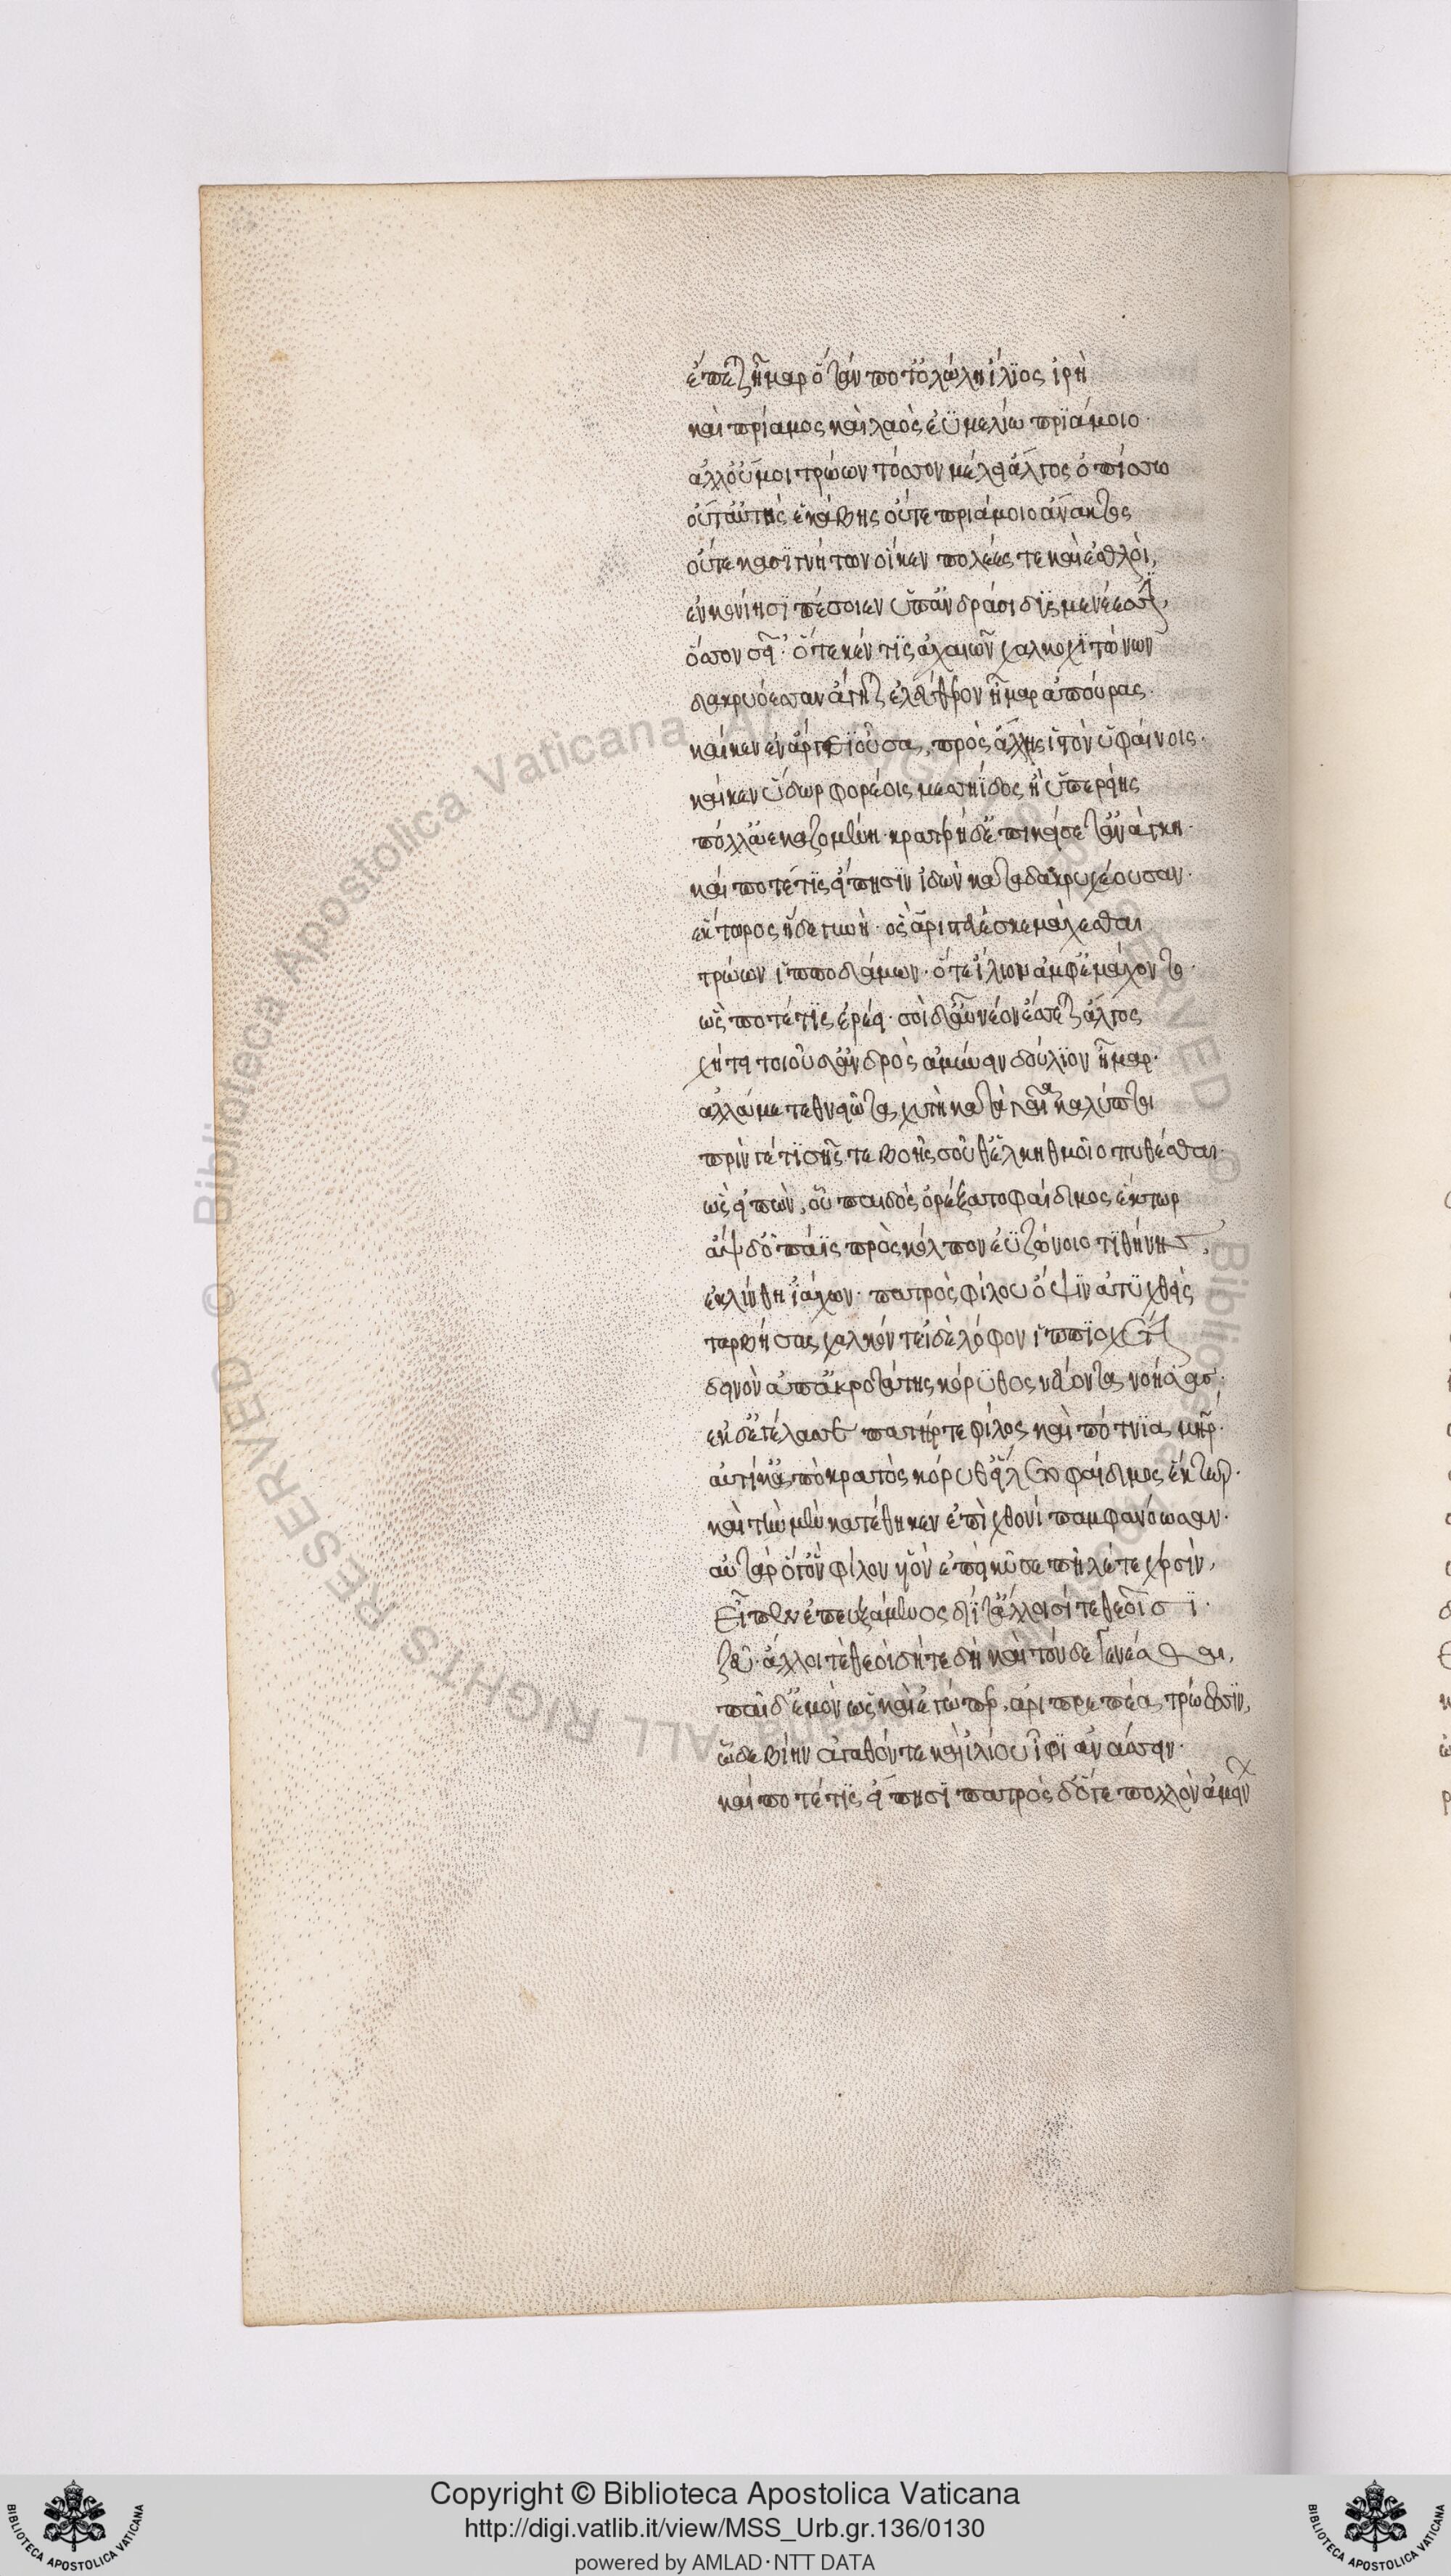 ἔσσεται ἦμαρ ὅταν ποτ' ὀλώλῃ ἴλϊος ἱρὴ
καὶ πρίαμος καὶ λαὸς ἐϋμελίω πρϊάμοιο·
ἀλλ' οὔ μοι τρώων τόσσον μέλει ἄλγος ὀπίσσω
οὔτ' αὐτῆς ἑκάβης οὔτε πριάμοιο ἄνακτος
οὔτε κασϊγνήτων οἵ κεν πολέες τε καὶ ἐσθλοὶ,
ἐν κονίησϊ πέσοιεν ὑπ' ἀνδράσι δϋσμενέεσσϊ,
ὅσσον σεῖ'· ὅτε κέν τϊς ἀχαιῶν χαλκοχϊτώνων
δακρυόεσσαν ἄγηται ἐλεύθερον ἦμαρ ἀπούρας·
καί κεν ἐν ἄργει ἐοῦσα, πρὸς ἄλλης ἱστὸν ὑφαίνοις·
καί κεν ὕδωρ φορέοις μεσσηΐδος ἢ ὑπερείης
πόλλ' ἀεκαζομένη· κρατερὴ δ' ἐπικείσετ' ἀνάγκη·
καί ποτέ τϊς εἴπησϊν ἰδὼν κατὰ δάκρυ χέουσαν·
ἕκτορος ἥδε γυνή· ὃς ἀριστεύεσκε μάχεσθαι
τρώων ἱπποδάμων· ὅτε ἴλιον ἀμφεμάχοντο·
ὥς ποτέ τϊς ἐρέει· σοὶ δ' αὖ νέον ἔσσεται ἄλγος
χήτει τοιοῦδ' ἀνδρὸς ἀμύνειν δούλϊον ἦμαρ·
ἀλλά με τεθνειῶτα χυτὴ κατὰ γαῖα καλύπτοι
πρίν γέ τϊ σῆς τε βοῆς σοῦ θ' ἑλκηθμοῖο πυθέσθαι·
ὣς εἰπὼν, οὗ παιδὸς ὀρέξατο φαίδιμος ἕκτωρ
ἂψ δ' ὁ πάϊς πρὸς κόλπον ἐϋζώνοιο τϊθήνης,
ἐκλίνθη ἰάχων· πατρὸς φίλου ὄψϊν ἀτϋχθεὶς
ταρβήσας χαλκόν τε ἰδὲ λόφον ἱππϊοχαίτην
δεινὸν ἀπ' ἀκροτάτης κόρϋθος νεύοντα νοήσας·
ἐκ δ' ἐγέλασσε πατήρ τε φίλος καὶ πότνϊα μήτηρ·
αὐτίκ' ἀπὸ κρατὸς κόρυθ' εἵλετο φαίδιμος ἕκτωρ·
καὶ τὴν μὲν κατέθηκεν ἐπὶ χθονὶ παμφανόωσαν·
αὐτὰρ ὅγ' ὃν φίλον υἱὸν ἐπεὶ κύσε πῆλέ τε χερσὶν,
εἶπεν ἐπευξάμενος διΐ τ' ἄλλοισί τε θεοῖσϊ·
ζεῦ· ἄλλοι τε θεοὶ δότε δὴ καὶ τόνδε γενέσθαι,
παῖδ' ἐμὸν ὡς καὶ ἐγώ περ, ἀριπρεπέα τρώεσσϊν,
ὧδε βίην ἀγαθόν τε καὶ ἰλίου ἶφϊ ἀνάσσειν·
καί ποτέ τϊς εἴπησϊ πατρὸς δ' ὅγε πολλὸν ἀμείνων
© Biblioteca Apostolica Vaticana ALL RIGHTS RESERVED
Copyright © Biblioteca Apostolica Vaticana
http://digi.vatlib.it/view/MSS_Urb.gr.136/0130
powered by AMLAD·NTT DATA
BIBLIOTECA APOSTOLICA VATICANA
BIBLIOTECA APOSTOLICA VATICANA